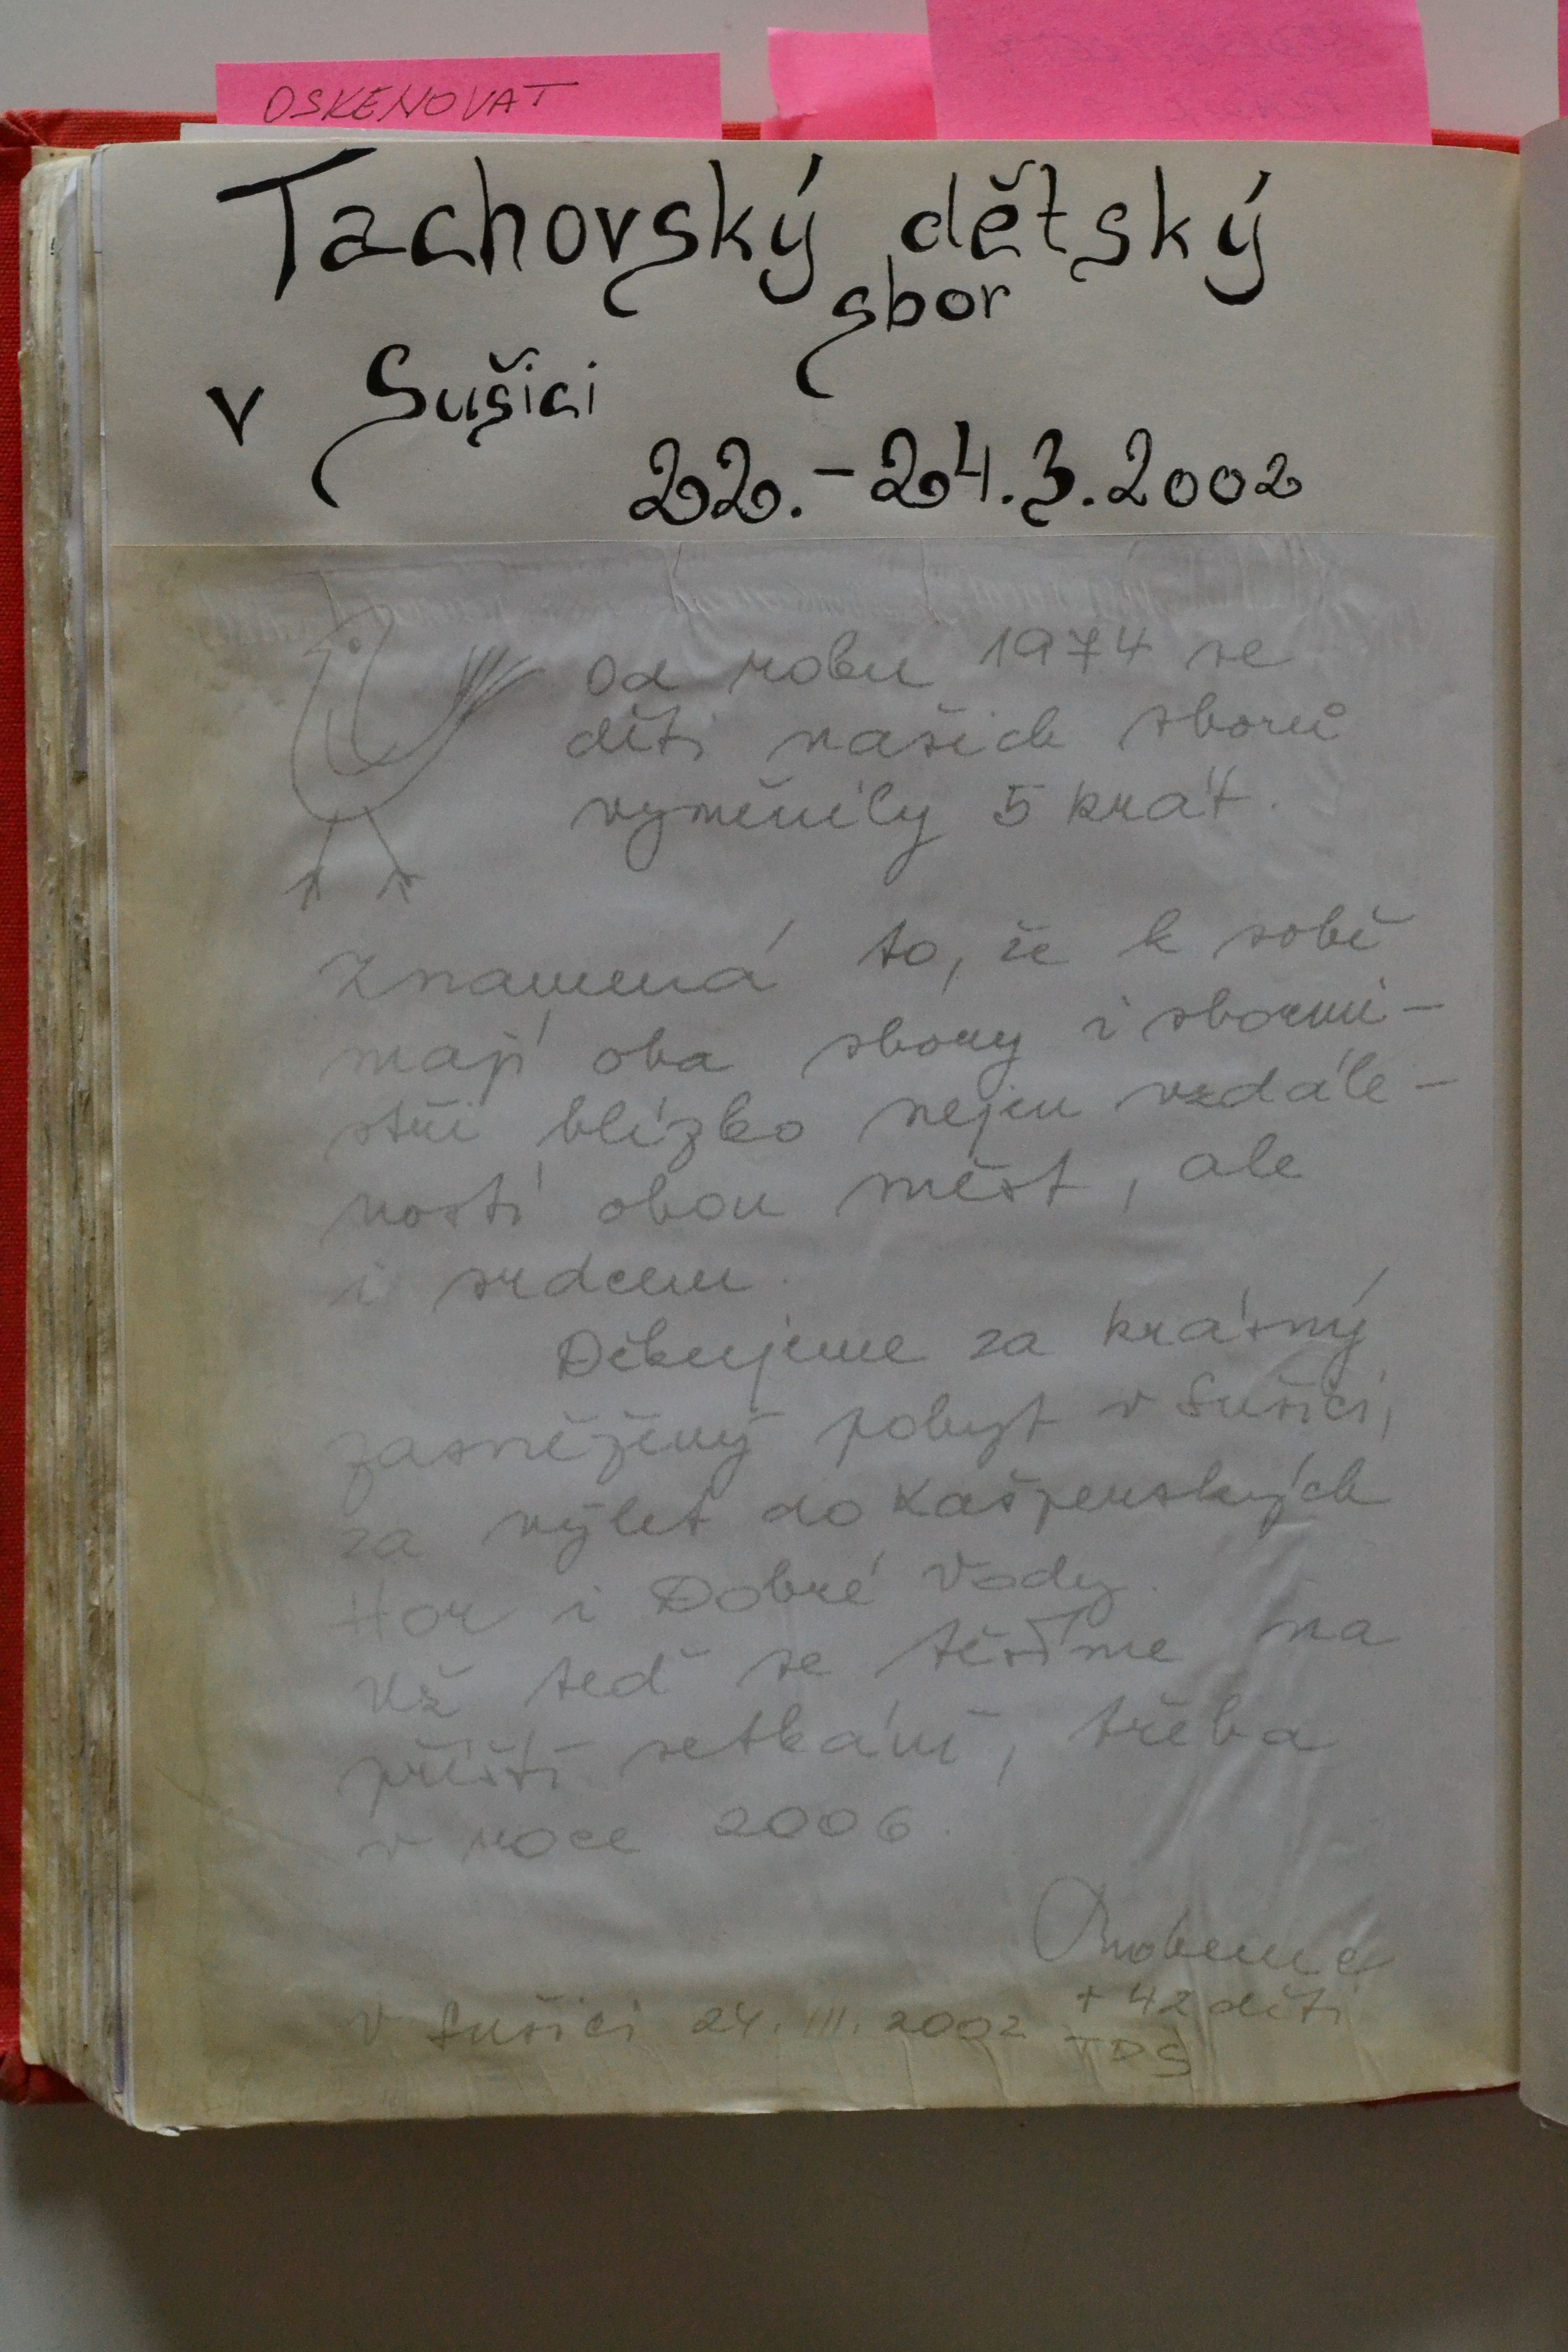 OSKENOVAT
Tachovský dětský
sbor
v Sušici
22. – 24. 3. 2002
Od roku 1974 se
děti našich sborů
vyměnily 5 krát.
Znamená to, že k sobě
mají oba sbory i sbormi-
stři blízko nejen vzdále-
ností obou měst, ale
i srdcem.
Děkujeme za krásný
zasněžený pobyt v Sušici,
za výlet do Kašperských
Hor i Dobré Vody.
Už teď se těšíme na
příští setkání, třeba
v roce 2006.
+ 42 dětí
V Sušici 24. III. 2002 TDS